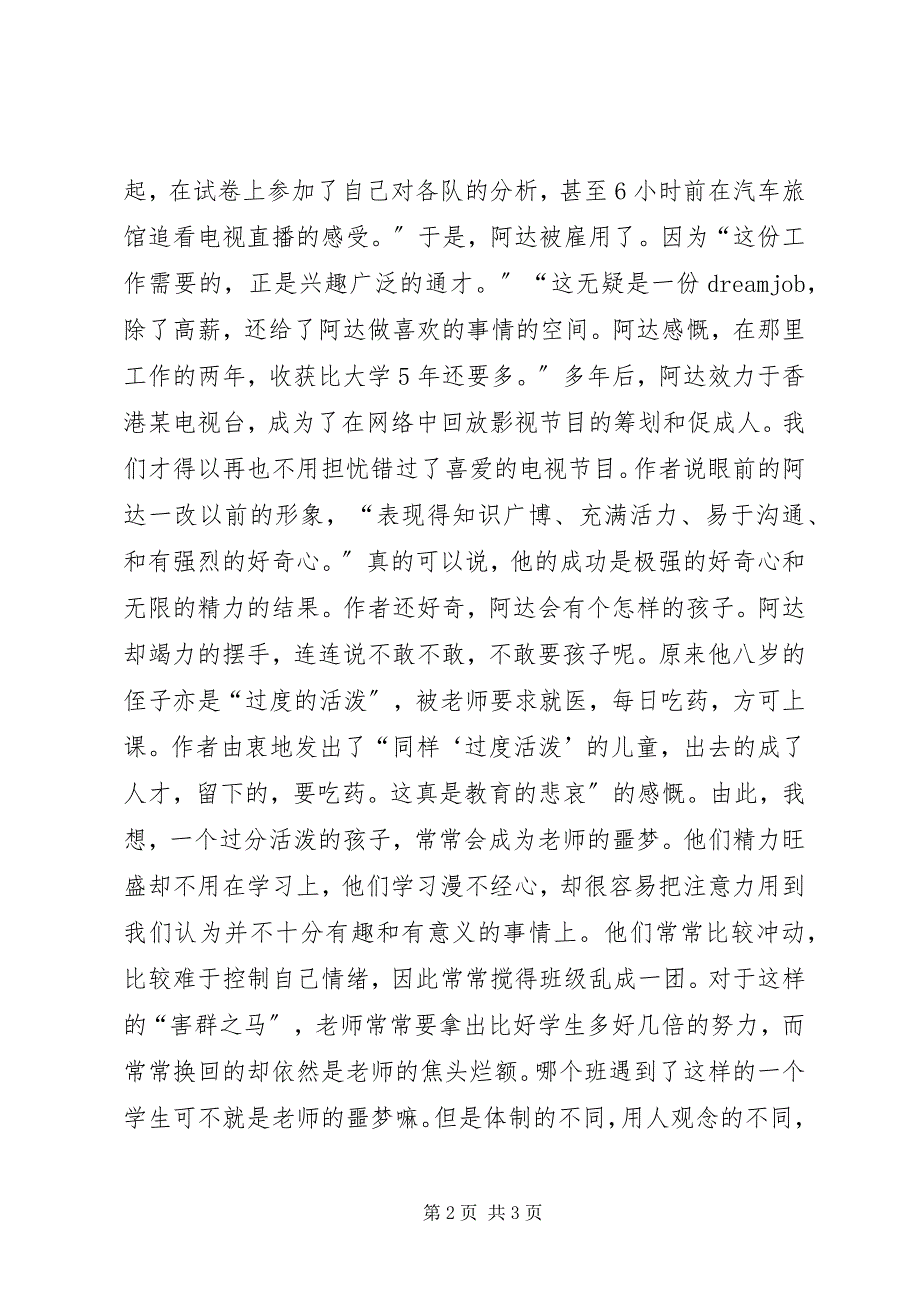 起，在试卷上参加了自己对各队的分析，甚至 6 小时前在汽车旅
馆追看电视直播的感受。〞于是，阿达被雇用了。因为“这份工
作需要的，正是兴趣广泛的通才。〞“这无疑是一份 dreamjob，
除了高薪，还给了阿达做喜欢的事情的空间。阿达感慨，在那里
工作的两年，收获比大学 5 年还要多。〞多年后，阿达效力于香
港某电视台，成为了在网络中回放影视节目的筹划和促成人。我
们才得以再也不用担忧错过了喜爱的电视节目。作者说眼前的阿
达一改以前的形象，“表现得知识广博、充满活力、易于沟通、
和有强烈的好奇心。〞真的可以说，他的成功是极强的好奇心和
无限的精力的结果。作者还好奇，阿达会有个怎样的孩子。阿达
却竭力的摆手，连连说不敢不敢，不敢要孩子呢。原来他八岁的
侄子亦是“过度的活泼〞，被老师要求就医，每日吃药，方可上
课。作者由衷地发出了“同样‘过度活泼’的儿童，出去的成了
人才，留下的，要吃药。这真是教育的悲哀〞的感慨。由此，我
想，一个过分活泼的孩子，常常会成为老师的噩梦。他们精力旺
盛却不用在学习上，他们学习漫不经心，却很容易把注意力用到
我们认为并不十分有趣和有意义的事情上。他们常常比较冲动，
比较难于控制自己情绪，因此常常搅得班级乱成一团。对于这样
的“害群之马〞，老师常常要拿出比好学生多好几倍的努力，而
常常换回的却依然是老师的焦头烂额。哪个班遇到了这样的一个
学生可不就是老师的噩梦嘛。但是体制的不同，用人观念的不同，
第 2 页 共 3 页